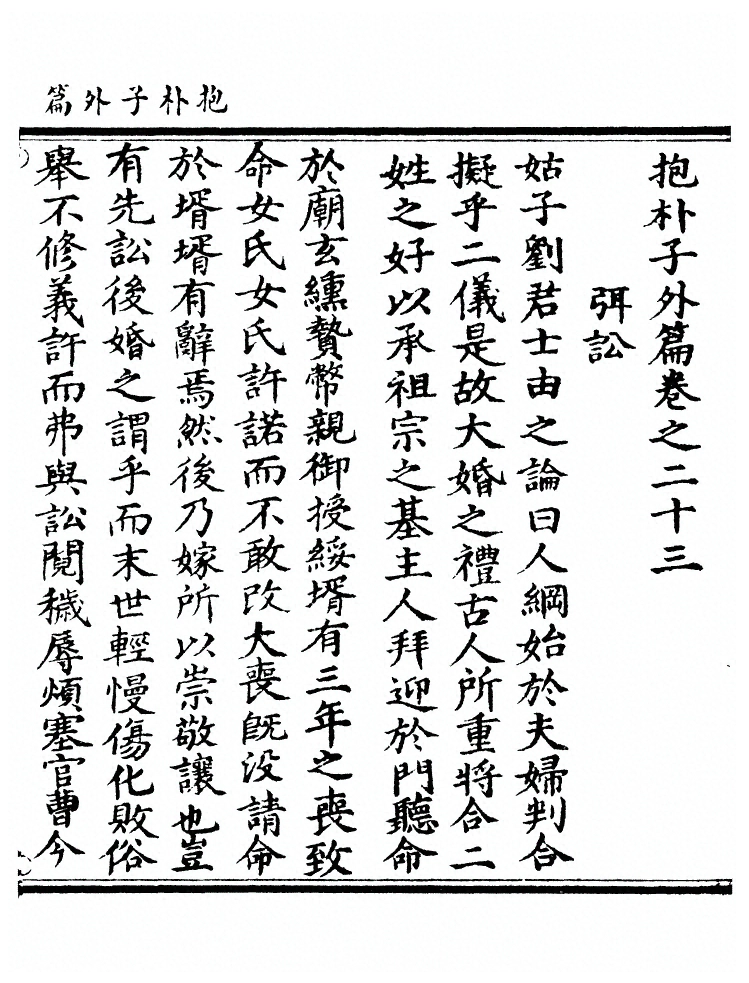 抱朴子外篇
抱朴子外篇卷之二十三
弭訟
姑子劉君士由之論曰人綱始於夫婦判合
擬乎二儀是故大婚之禮古人所重將合二
姓之好以承祖宗之基主人拜迎於門聽命
於廟玄纁贄幣親御授綏壻有三年之喪致
命女氏女氏許諾而不敢改大喪既没請命
於壻壻有辭焉然後乃嫁所以崇敬讓也豈
有先訟後婚之謂乎而末世輕慢傷化敗俗
舉不修義許而弗與訟鬩穢辱煩塞官曹今